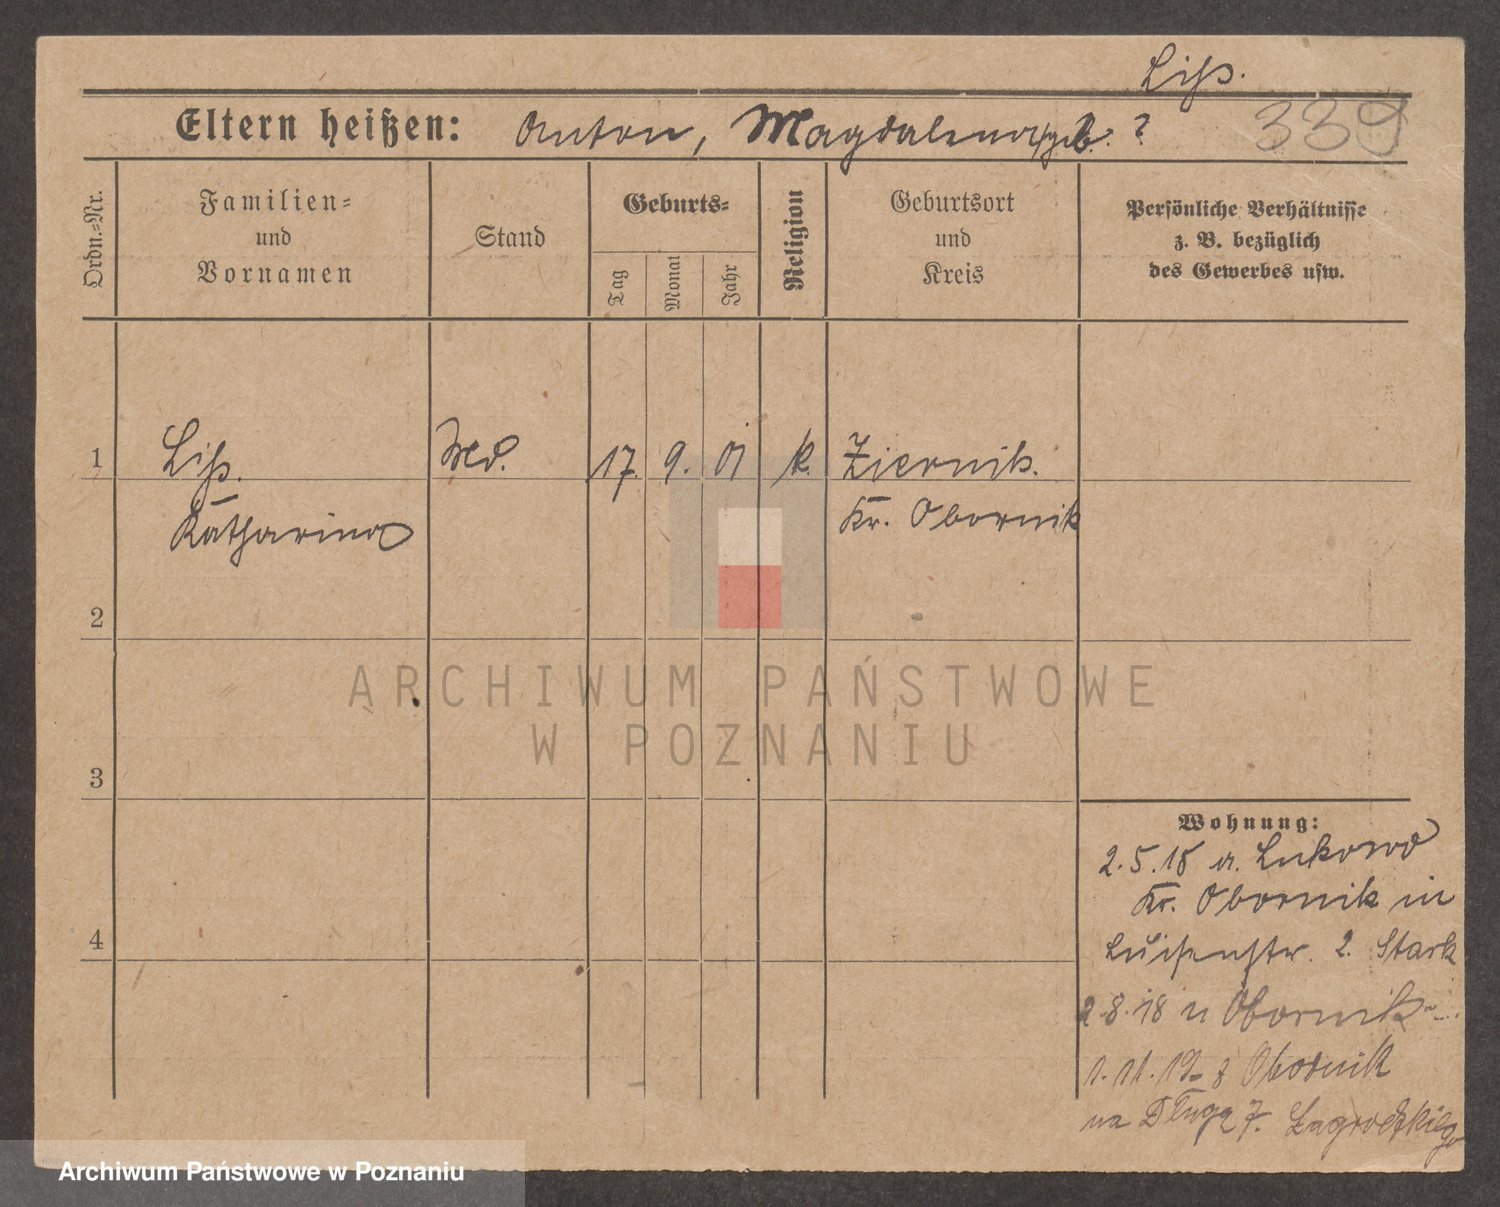 Liß.
Eltern heißen: Anton, Magdalena geb. ?
339
Ordn.-Nr.
Familien-
und
Vornamen
Stand
Geburts-
Tag
Monat
Jahr
Religion
Geburtsort
und
Kreis
Persönliche Verhältnisse
z. B. bezüglich
des Gewerbes usw.
1 Liß. Md. 17. 9. 01 k. Ziernik.
Katharina Kr. Obornik
2
ARCHIWUM PAŃSTWOWE
W POZNANIU
3
Wohnung:
2.5.18 a. Lukowo
Kr. Obornik in
Luisenstr. 2. Stark
4
2.8.18 n Obornik
1.11.19 z Obornik
na Długą 7.
Archiwum Państwowe w Poznaniu